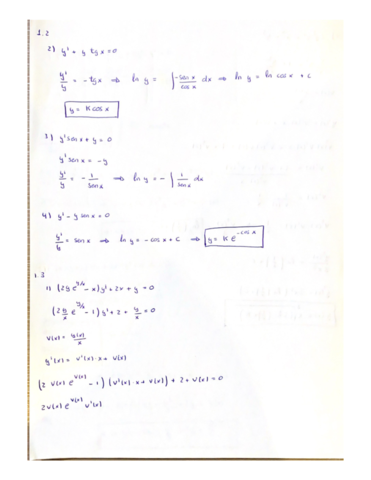 1.2
2) y' + y tg x = 0
y'/y = - tg x ⇒ ln y = ∫ -sen x/cos x dx ⇒ ln y = ln cos x + c
y = K cos x
3) y' sen x + y = 0
y' sen x = -y
y'/y = - 1/sen x ⇒ ln y = - ∫ 1/sen x dx
4) y' - y sen x = 0
y'/y = sen x ⇒ ln y = - cos x + c ⇒ y = K e^(-cos x)
1.3
1) (2y e^(y/x) - x) y' + 2x + y = 0
(2 y/x e^(y/x) - 1) y' + 2 + y/x = 0
v(x) = y(x)/x
y'(x) = v'(x)·x + v(x)
(2 v(x) e^(v(x)) - 1) (v'(x)·x + v(x)) + 2 + v(x) = 0
2v(x) e^(v(x)) v'(x)